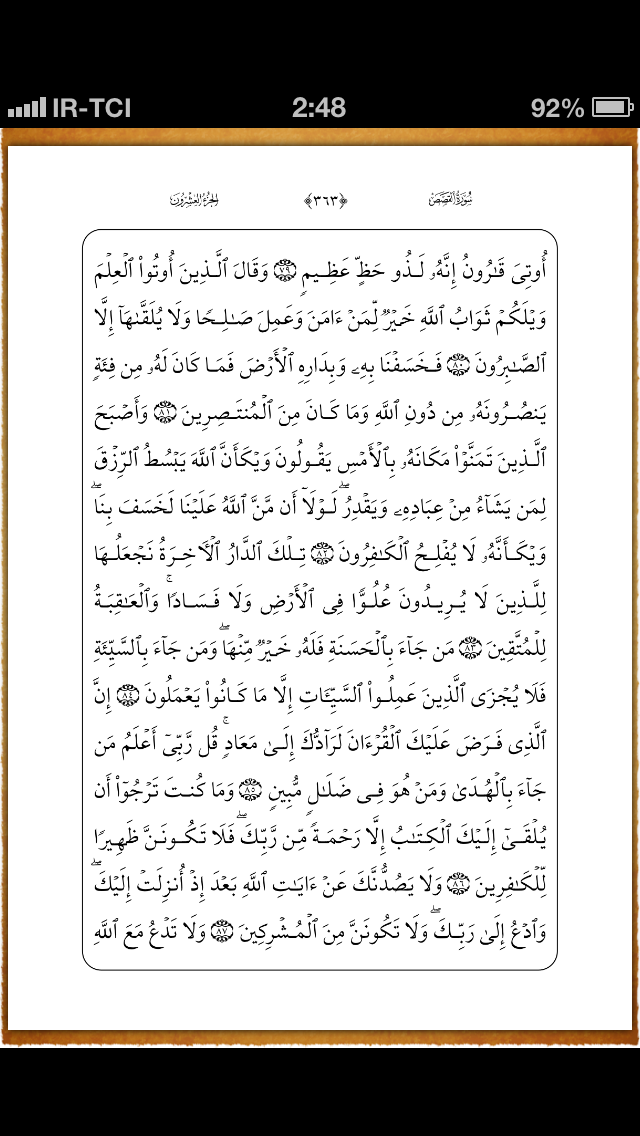 IR-TCI 2:48 92%
سُورَةُ القَصَصِ ﴿٣٦٣﴾ الجُزءُ العِشرُونَ
أُوتِىَ قَٰرُونُ إِنَّهُۥ لَذُو حَظٍّ عَظِيمٍ ۝٧٩ وَقَالَ ٱلَّذِينَ أُوتُوا۟ ٱلْعِلْمَ
وَيْلَكُمْ ثَوَابُ ٱللَّهِ خَيْرٌ لِّمَنْ ءَامَنَ وَعَمِلَ صَٰلِحًا وَلَا يُلَقَّىٰهَآ إِلَّا
ٱلصَّٰبِرُونَ ۝٨٠ فَخَسَفْنَا بِهِۦ وَبِدَارِهِ ٱلْأَرْضَ فَمَا كَانَ لَهُۥ مِن فِئَةٍ
يَنصُرُونَهُۥ مِن دُونِ ٱللَّهِ وَمَا كَانَ مِنَ ٱلْمُنتَصِرِينَ ۝٨١ وَأَصْبَحَ
ٱلَّذِينَ تَمَنَّوْا۟ مَكَانَهُۥ بِٱلْأَمْسِ يَقُولُونَ وَيْكَأَنَّ ٱللَّهَ يَبْسُطُ ٱلرِّزْقَ
لِمَن يَشَآءُ مِنْ عِبَادِهِۦ وَيَقْدِرُ ۖ لَوْلَآ أَن مَّنَّ ٱللَّهُ عَلَيْنَا لَخَسَفَ بِنَا ۖ
وَيْكَأَنَّهُۥ لَا يُفْلِحُ ٱلْكَٰفِرُونَ ۝٨٢ تِلْكَ ٱلدَّارُ ٱلْءَاخِرَةُ نَجْعَلُهَا
لِلَّذِينَ لَا يُرِيدُونَ عُلُوًّا فِى ٱلْأَرْضِ وَلَا فَسَادًا ۚ وَٱلْعَٰقِبَةُ
لِلْمُتَّقِينَ ۝٨٣ مَن جَآءَ بِٱلْحَسَنَةِ فَلَهُۥ خَيْرٌ مِّنْهَا ۖ وَمَن جَآءَ بِٱلسَّيِّئَةِ
فَلَا يُجْزَى ٱلَّذِينَ عَمِلُوا۟ ٱلسَّيِّـَٔاتِ إِلَّا مَا كَانُوا۟ يَعْمَلُونَ ۝٨٤ إِنَّ
ٱلَّذِى فَرَضَ عَلَيْكَ ٱلْقُرْءَانَ لَرَآدُّكَ إِلَىٰ مَعَادٍ ۚ قُل رَّبِّىٓ أَعْلَمُ مَن
جَآءَ بِٱلْهُدَىٰ وَمَنْ هُوَ فِى ضَلَٰلٍ مُّبِينٍ ۝٨٥ وَمَا كُنتَ تَرْجُوٓا۟ أَن
يُلْقَىٰٓ إِلَيْكَ ٱلْكِتَٰبُ إِلَّا رَحْمَةً مِّن رَّبِّكَ ۖ فَلَا تَكُونَنَّ ظَهِيرًا
لِّلْكَٰفِرِينَ ۝٨٦ وَلَا يَصُدُّنَّكَ عَنْ ءَايَٰتِ ٱللَّهِ بَعْدَ إِذْ أُنزِلَتْ إِلَيْكَ ۖ
وَٱدْعُ إِلَىٰ رَبِّكَ ۖ وَلَا تَكُونَنَّ مِنَ ٱلْمُشْرِكِينَ ۝٨٧ وَلَا تَدْعُ مَعَ ٱللَّهِ